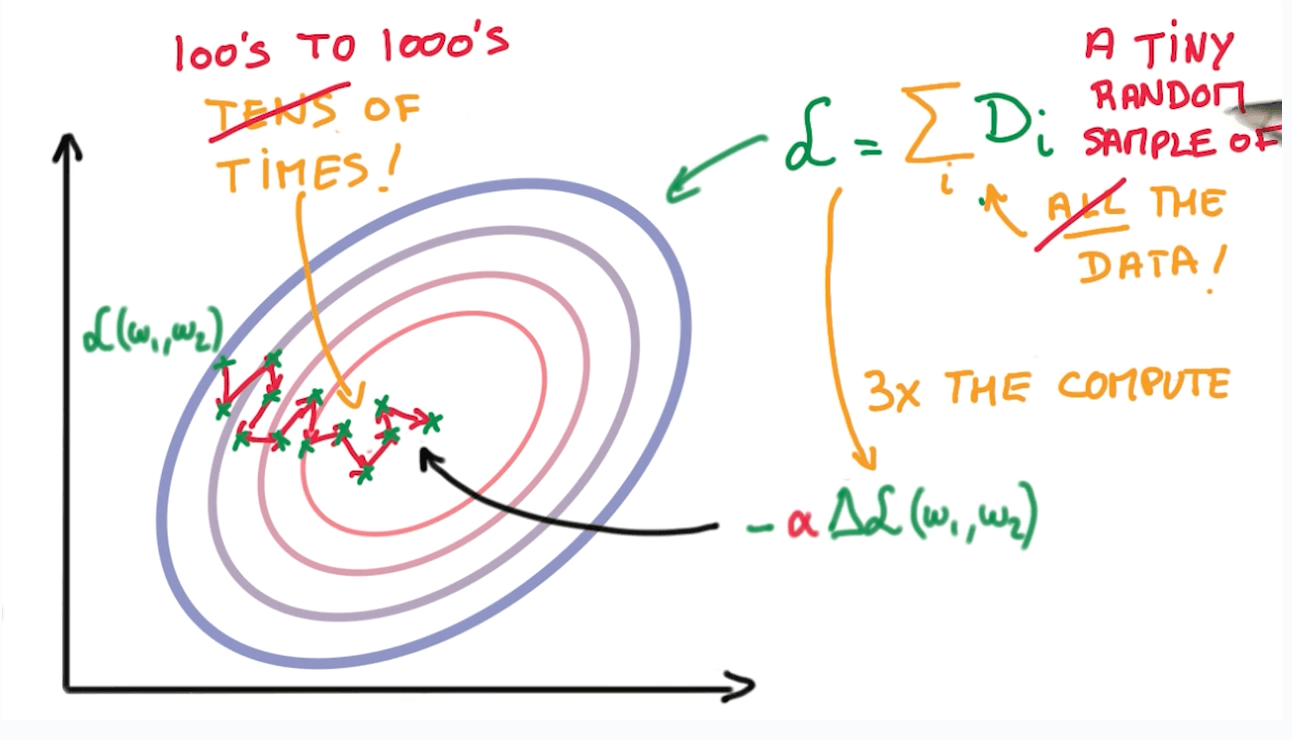 100's TO 1000's
TENS OF
TIMES!
ℒ = Σ Di
i
A TINY
RANDOM
SAMPLE OF
ALL THE
DATA!
ℒ(ω₁,ω₂)
3x THE COMPUTE
-αΔℒ(ω₁,ω₂)